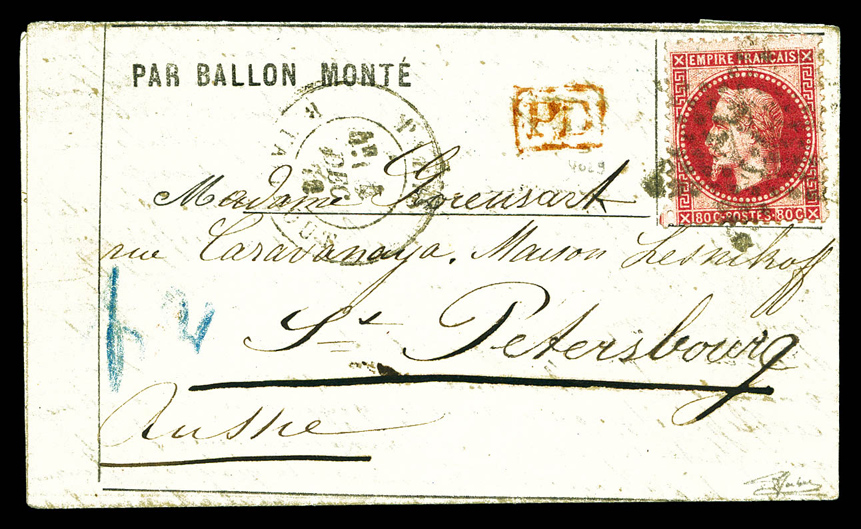 PAR BALLON MONTÉ
EMPIRE FRANÇAIS
80C POSTES 80C
PD
DEC
4029
Madame Goreusart
rue Caravanaya. Maison Lesnikoff
St Petersbourg
Russie